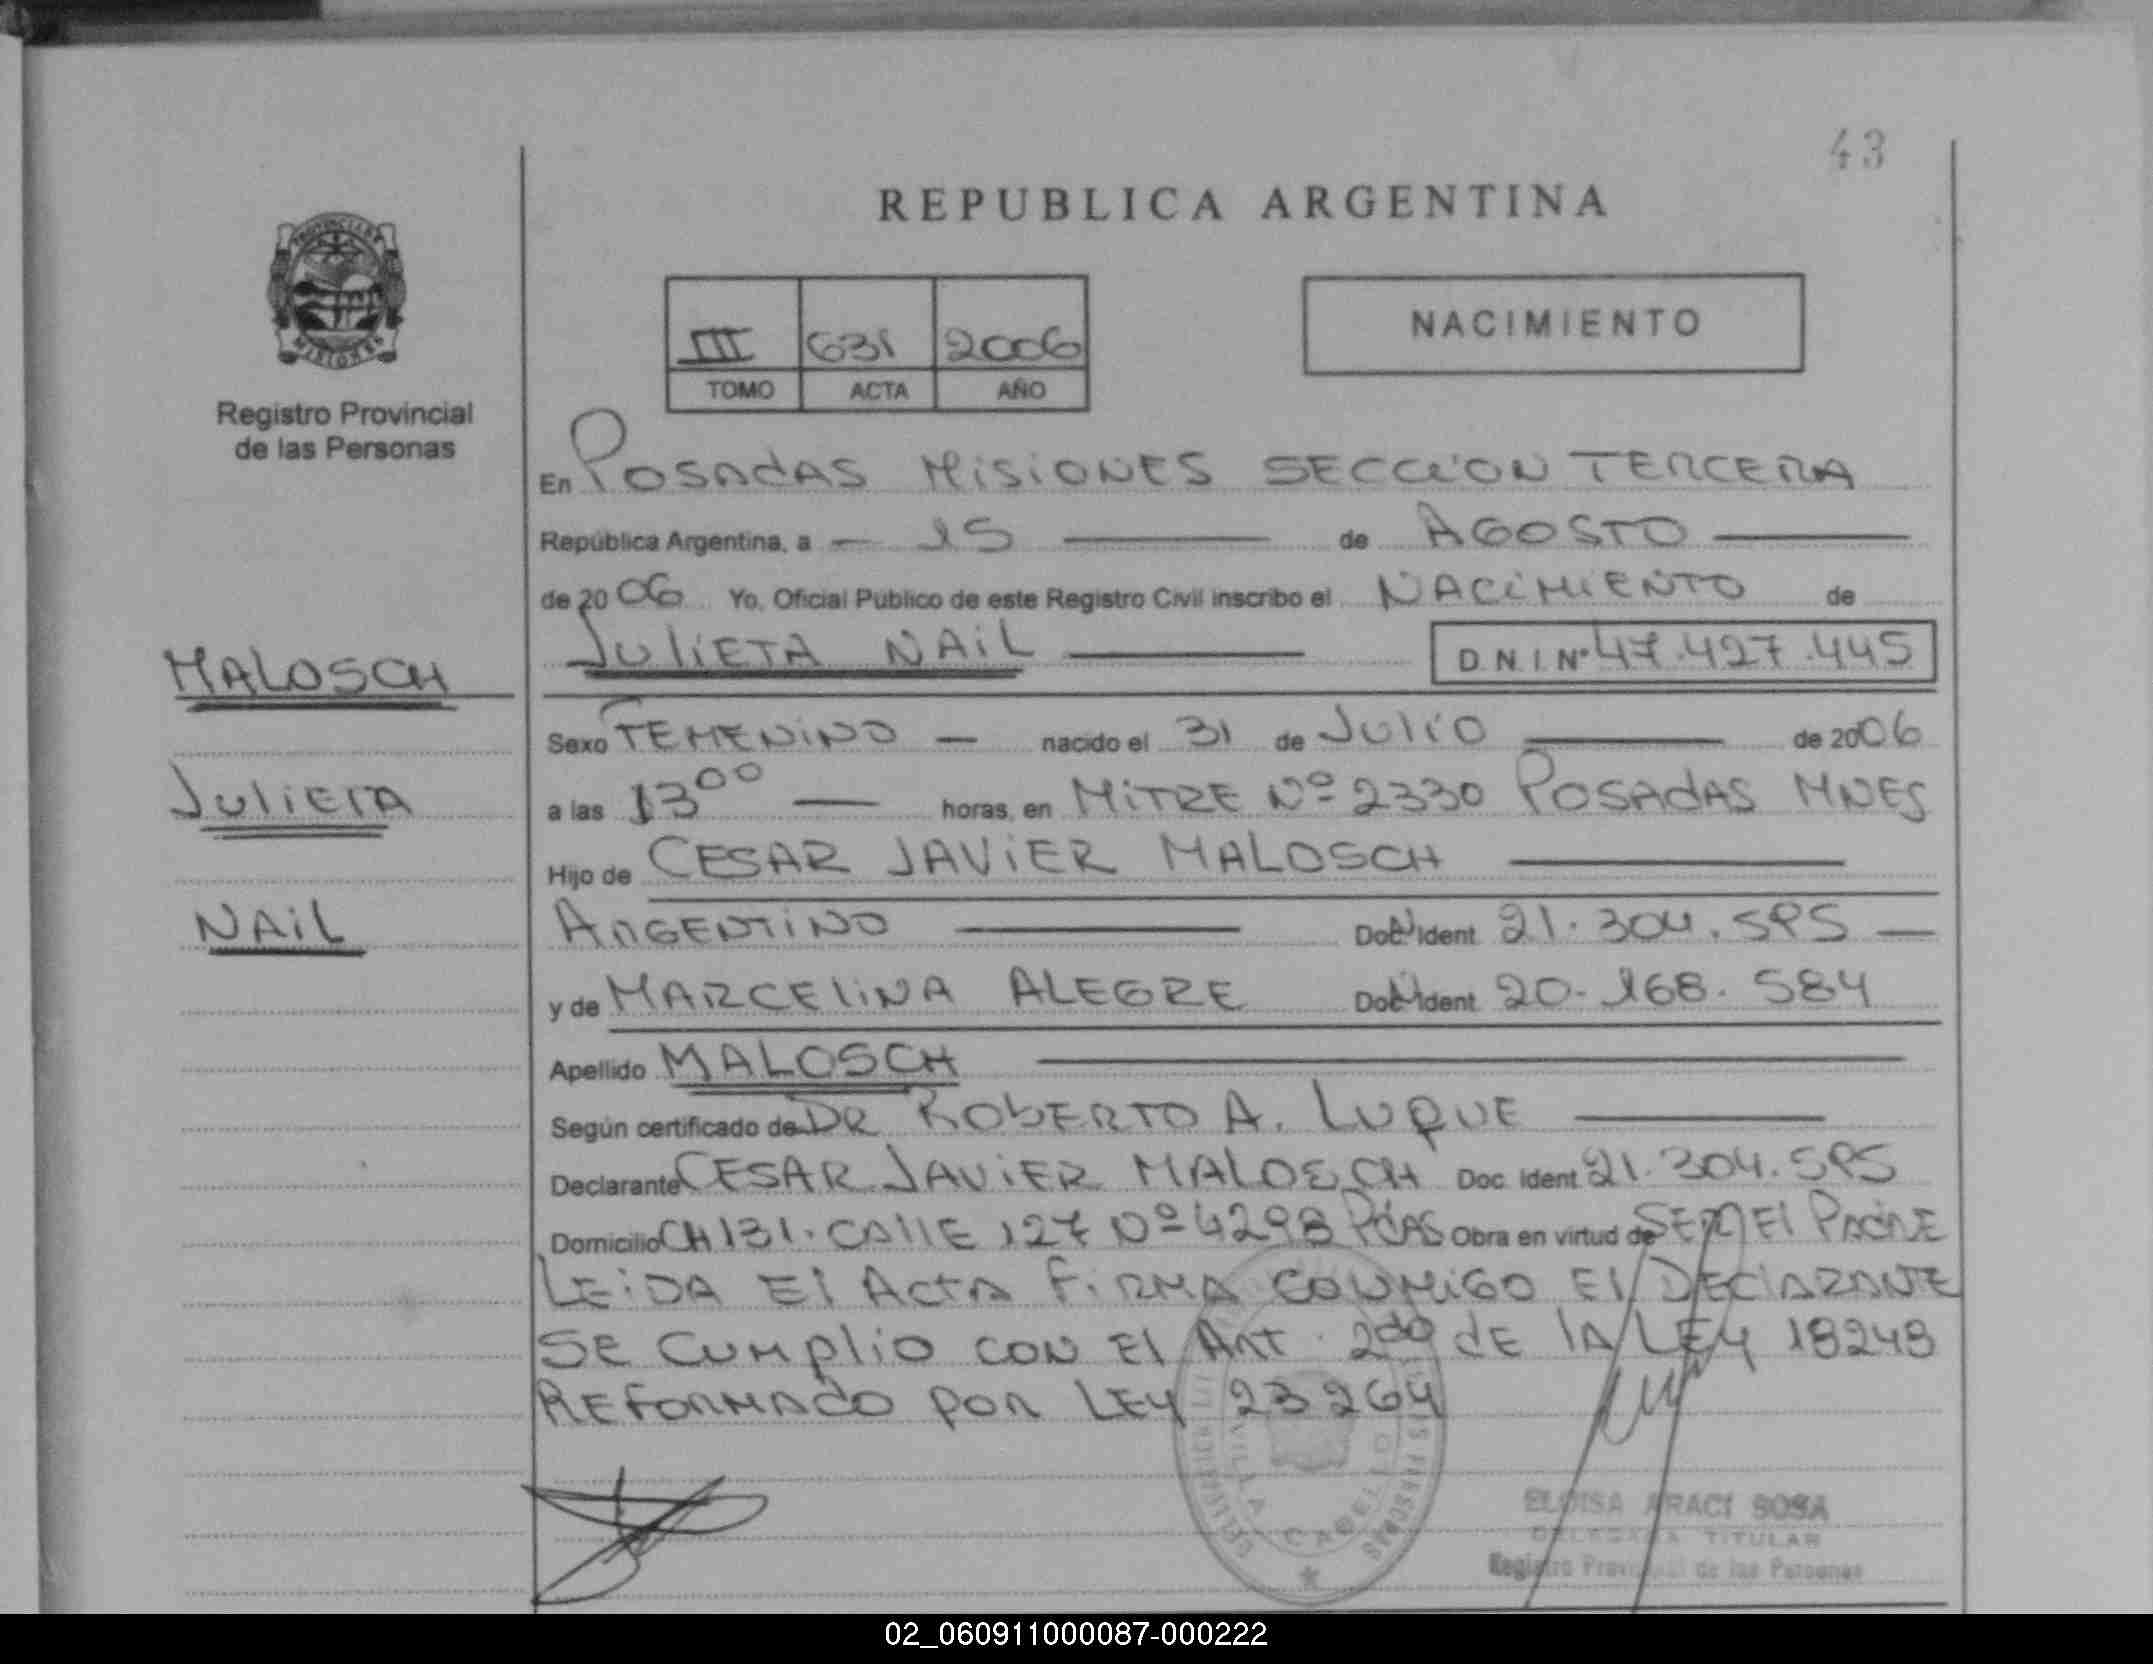 43
REPUBLICA ARGENTINA
PROVINCIA DE
MISIONES
III 631 2006
TOMO ACTA AÑO
NACIMIENTO
Registro Provincial
de las Personas
En POSADAS MISIONES SECCION TERCERA
República Argentina, a — 15 — de AGOSTO —
de 2006 Yo, Oficial Público de este Registro Civil inscribo el NACIMIENTO de
JULIETA NAIL — D.N.I. Nº 47.427.445
MALOSCH
Sexo FEMENINO — nacido el 31 de JULIO — de 2006
JULIETA
a las 13⁰⁰ — horas, en MITRE Nº 2330 POSADAS MNES
Hijo de CESAR JAVIER MALOSCH —
NAIL
ARGENTINO — Doc. Ident 21.304.595 —
y de MARCELINA ALEGRE Doc. Ident 20.168.584
Apellido MALOSCH —
Según certificado de DR ROBERTO A. LUQUE —
Declarante CESAR JAVIER MALOSCH Doc. Ident 21.304.595
Domicilio CH 131. CALLE 127 Nº 4298 PDAS Obra en virtud de SER EL PADRE
LEIDA El ACTA FIRMA CONMIGO El DEClARANTE
SE CUMPLIO CON El ART. 2do dE lA LEY 18248
REFORMADO POR LEY 23264
VILLA CABELLO
ELOISA ARACI SOSA
DELEGADA TITULAR
Registro Provincial de las Personas
02_060911000087-000222